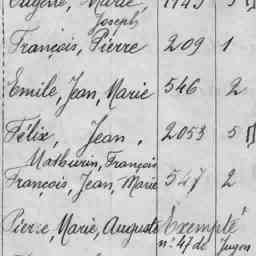 Eugène, Marie, 1943 5
Joseph
François, Pierre 209 1
Emile, Jean, Marie 546 2
Félix, Jean, 2053 5
Mathurin, François
François, Jean, Marie 547 2
Pierre, Marie, Auguste Exempté
n° 47 de Jugon